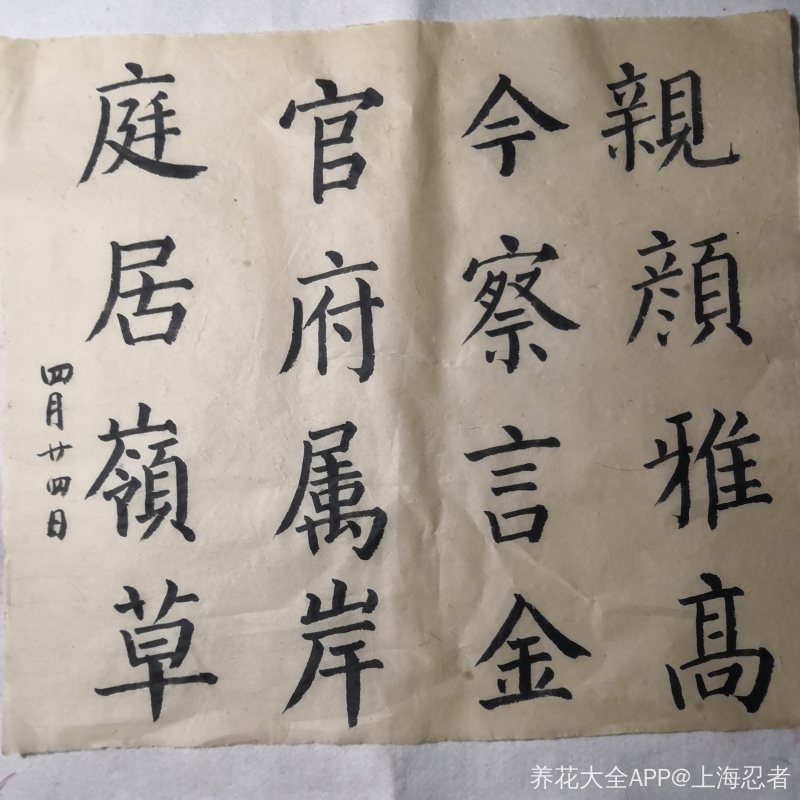 親顔雅高
今察言金
官府属岸
庭居嶺草
四月廿四日
养花大全APP@上海忍者